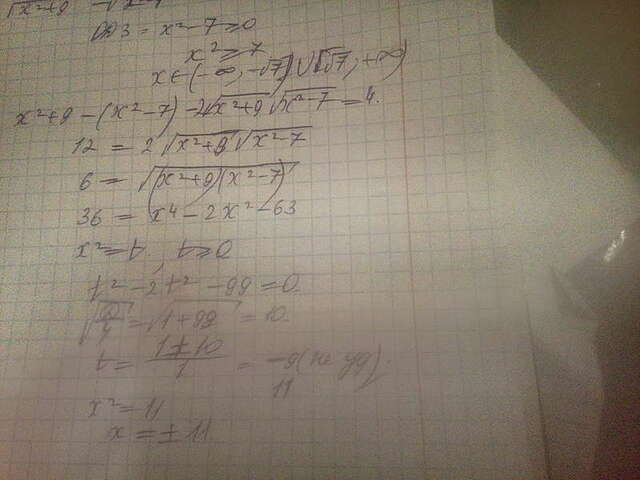 √x²+9 − √x²−7
ОДЗ = x²−7 ≥ 0
x² ≥ 7
x ∈ (−∞; −√7] ∪ [√7; +∞)
x²+9 − (x²−7) − 2√x²+9 √x²−7 = 4.
12 = 2√x²+9 √x²−7
6 = √(x²+9)(x²−7)
36 = x⁴ − 2x² − 63
x² = t, t ≥ 0
t² − 2t − 99 = 0
= √1+99 = 10
t = 1±10 / 1 = −9 (не уд).
11
x² = 11
x = ±11